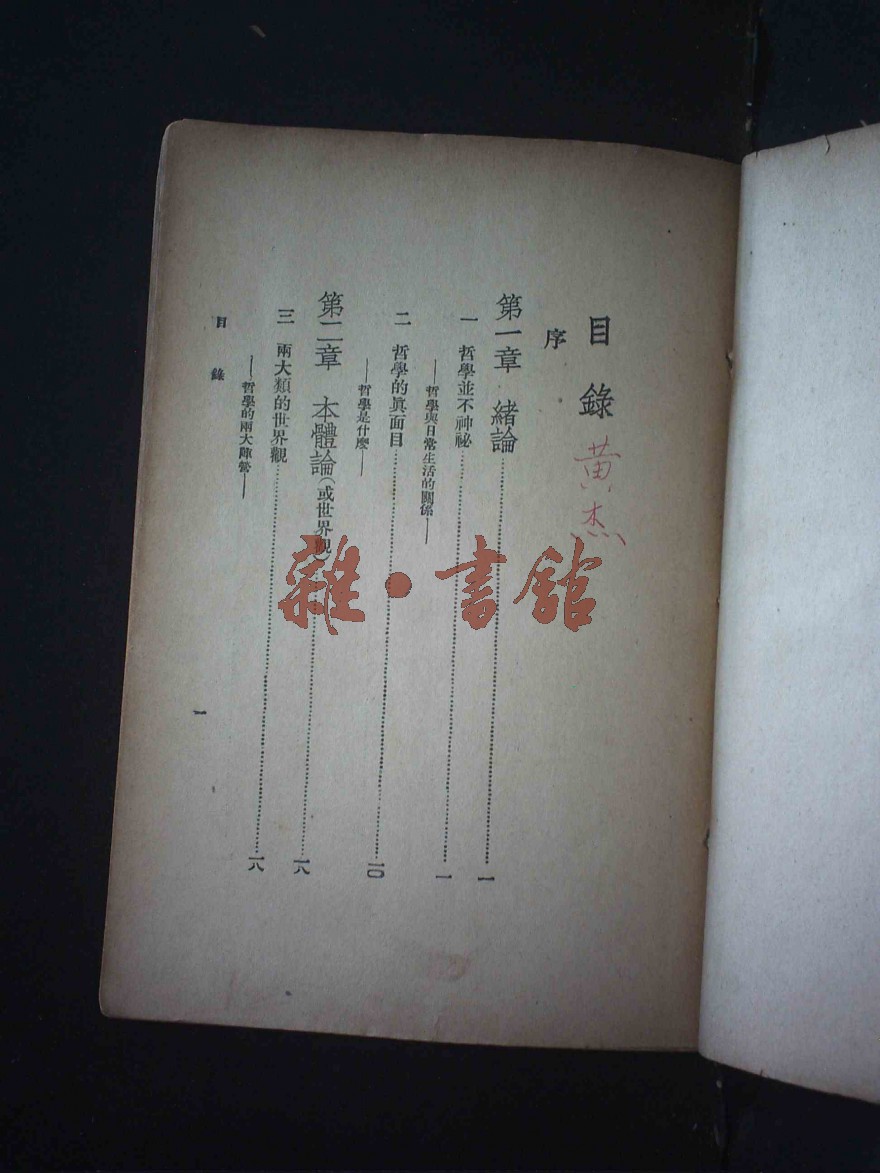 目錄
黄杰
序
第一章 緒論…………一
一 哲學並不神祕…………一
——哲學與日常生活的關係——
二 哲學的眞面目…………一〇
——哲學是什麽——
第二章 本體論(或世界觀)…………一八
三 兩大類的世界觀…………一八
——哲學的兩大陣營——
目錄
一
雜·書館